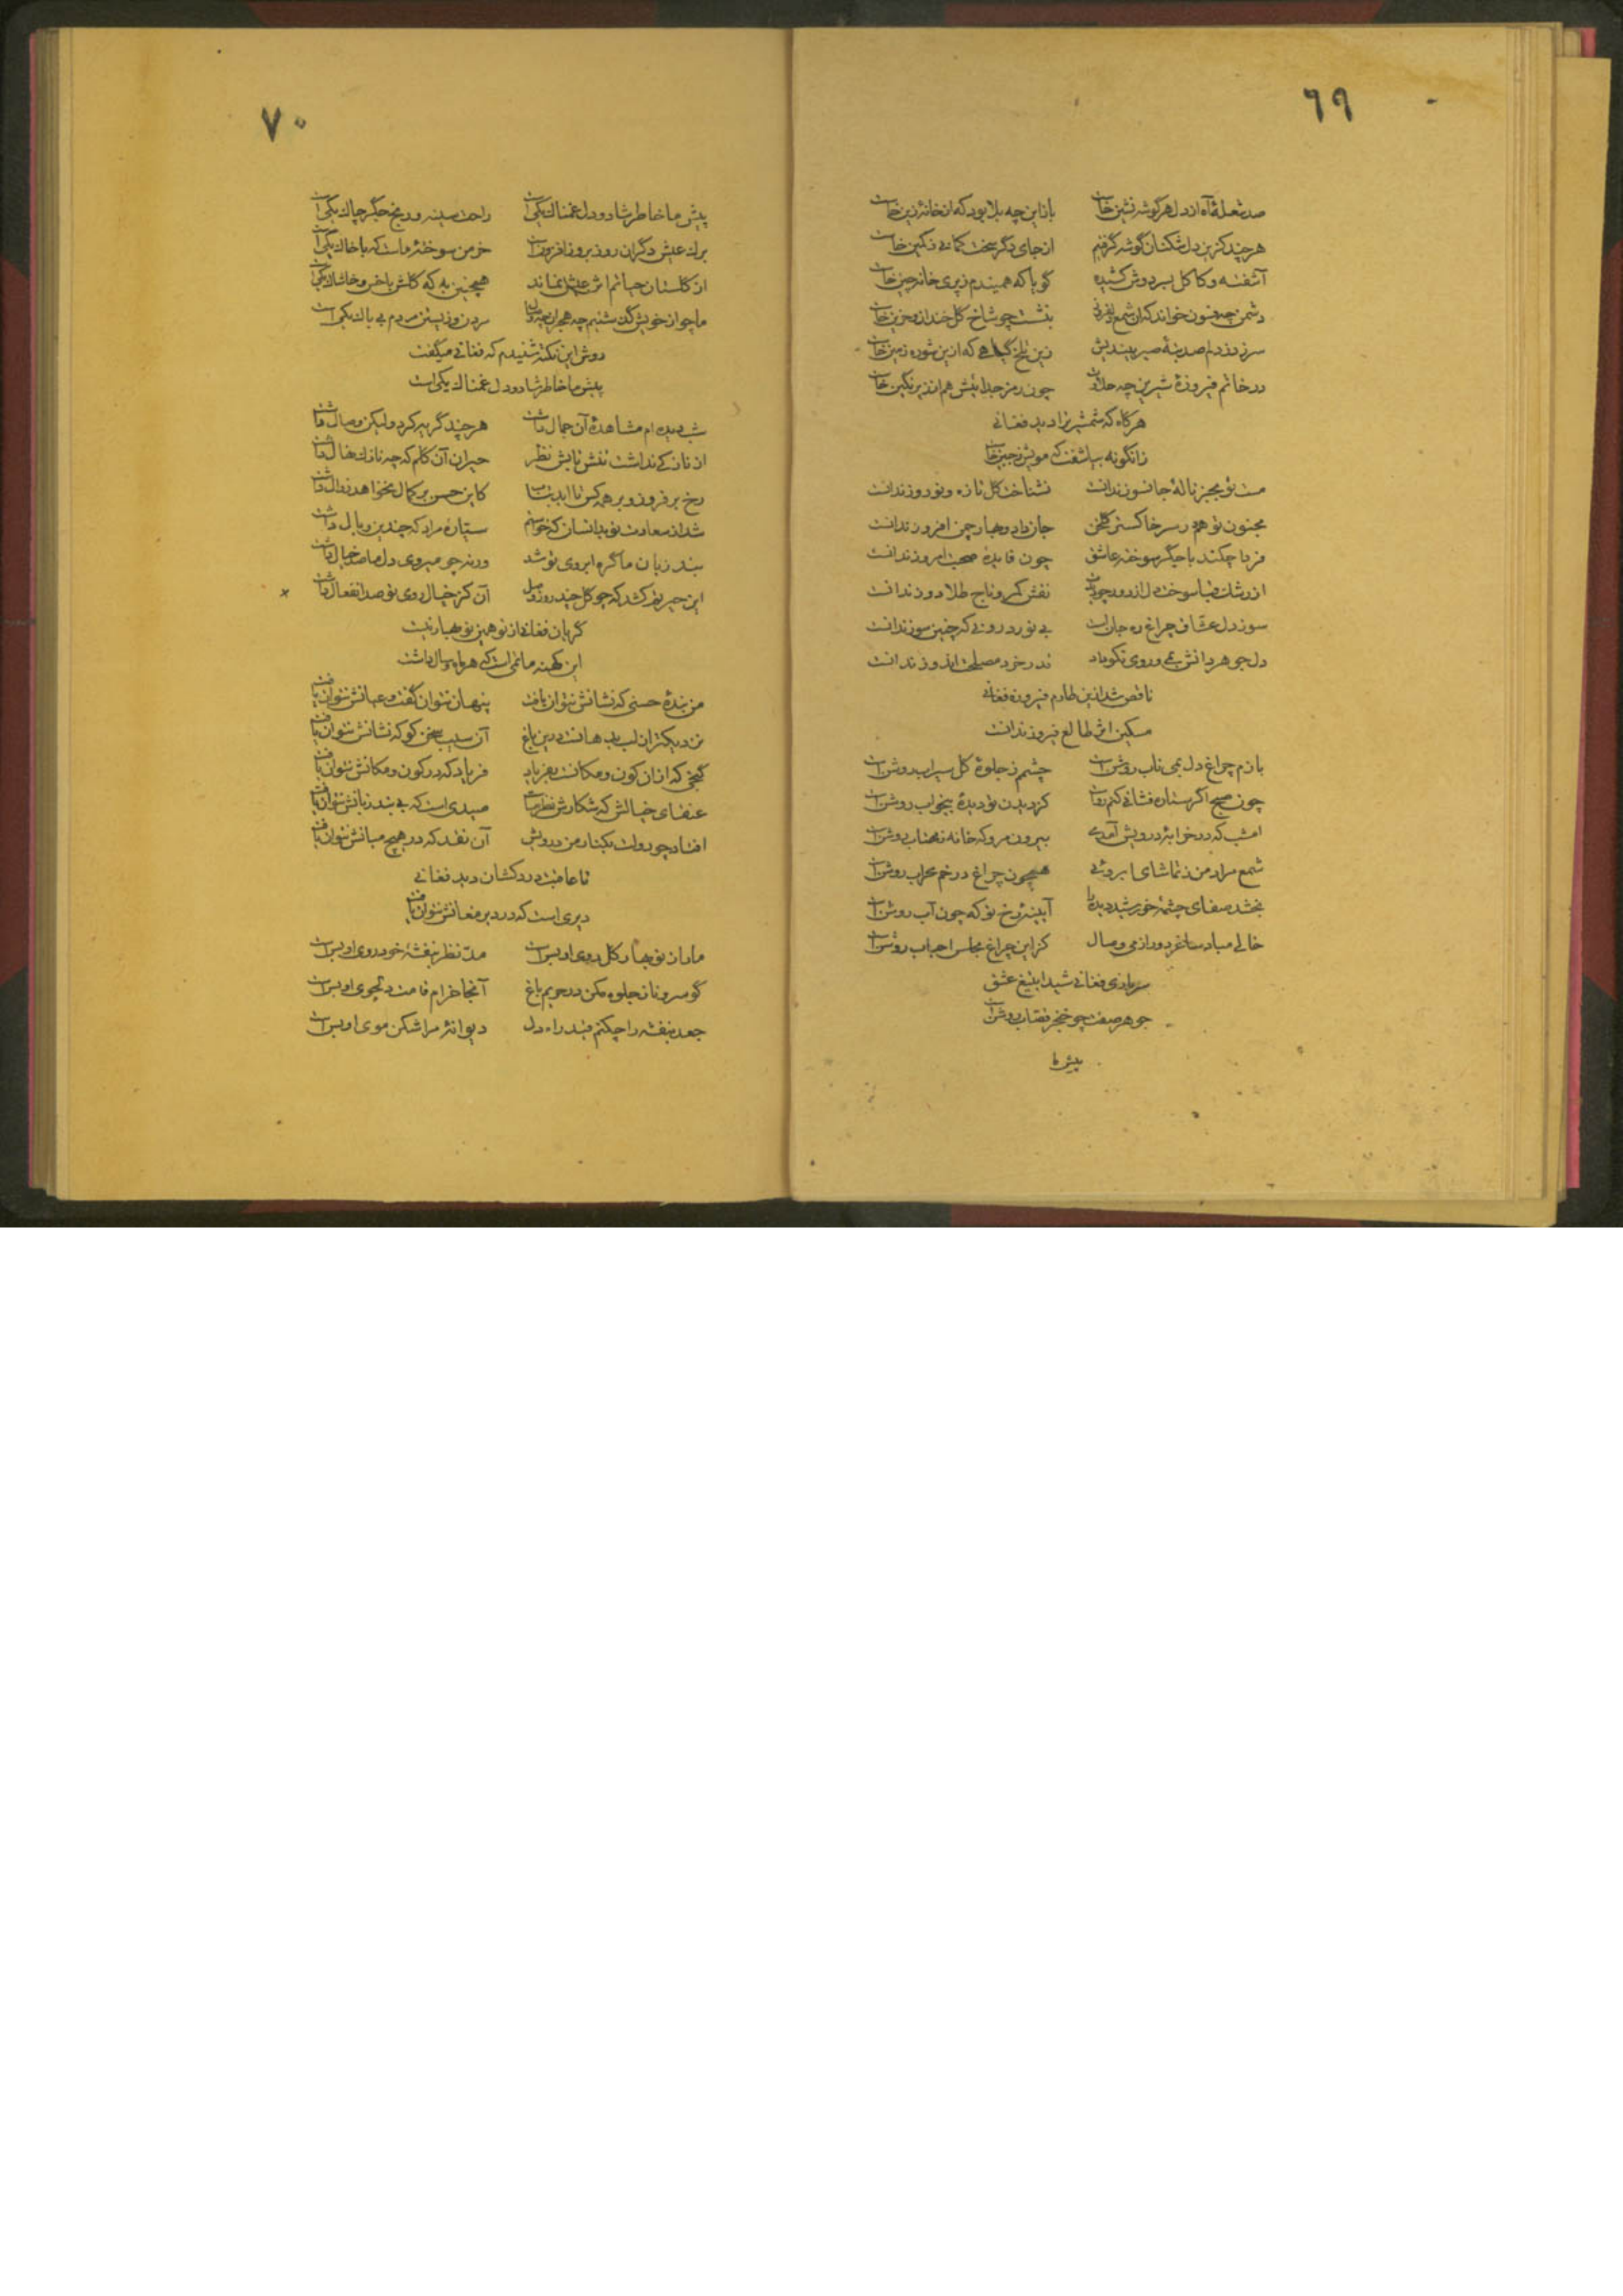 ٦٩
صد شعلهٔ آه از دل هر گوشه نشین خاست باز این چه بلا بود که از خانهٔ زین خاست
هر چند کزین دل شکنان گوشه گرفتم از جای دگر سخت کمانی ز کمین خاست
آشفته و کاکل بسر دوش کشیده گویا که همیندم ز پری خانهٔ چین خاست
دشمن چه فسون خواند که آن شمع بنشست چو شاخ گل خندان و حزین خاست
سر زد ز دلم صد زین تلخ گیاهی که ازین شوره زمین خاست
در خاتم فیروزهٔ شیرین چه حلاوت چون رمز جدائیش هم از زیر نگین خاست
هر گاه که شمشیر ترا دید فغانی
زانگونه بیاشفت که مویش ز جبین خاست
مست تو بجز نالهٔ جانسوز ندانست نشناخت گل تازه و نوروز ندانست
مجنون تو هم در سر خاکستر گلخن جان داد و بهار چمن افروز ندانست
فردا چکند با جگر سوخته عاشق چون فایدهٔ صحبت امروز ندانست
از رشک قبا سوخت دل نقش کمر و تاج طلا دوز ندانست
سوز دل عشاق چراغ ره جانست بی نور درونی که چنین سوز ندانست
دل جوهر دانش بمی و روی نکو داد قدر خرد مصلحت اندوز ندانست
ناقص شد ازین طارم فیروزه فغانی
مسکین اثر طالع فیروز ندانست
بازم چراغ دل بمی ناب روشن است چشمم ز جلوهٔ گل سیراب روشن است
چون صبح اگر ستاره فشانی کنم رواست کز دیدن تو دیدهٔ بیخواب روشن است
امشب که در خرابهٔ درویش آمدی بیرون مرو که خانه ز مهتاب روشن است
شمع مراد من ز تماشای ابروئی همچون چراغ در خم محراب روشن است
بخشد صفای چشمهٔ خورشید دیده را آیینهٔ رخ تو که چون آب روشن است
خالی مباد ساغر دور از می وصال کز این چراغ مجلس احباب روشن است
سربازی فغانی شیدا بتیغ عشق
جوهر صفت چو خنجر قصاب روشن است
پیش ما
٧٠
پیش ما خاطر شاد و دل غمناک یکی است راحت سینه و رنج جگر چاک یکی است
برگ عیش دگران روز بروز افزونست خرمن سوختهٔ ماست که با خاک یکی است
از گلستان حیاتم اثر عیش نماند همچنین به که گلش با خس و خاشاک یکی است
ما چو از خویش گذشتیم چه هجران چه وصال مردن و زیستن مردم بی باک یکی است
دوش این نکته شنیدم که فغانی میگفت
پیش ما خاطر شاد و دل غمناک یکی است
شب دیده‌ام مشاهدهٔ آن جمال داشت هر چند گریه کرد ولیکن وصال داشت
از نازکی نداشت تنش تاب نظر حیران آن گلم که چه نازک نهال داشت
رخ بر فروز و بر همه کس تا ابد بتاب کاین حسن بر کمال نخواهد زوال داشت
شد از سعادت تو ستارهٔ مراد که چندین وبال داشت
بند زبان ما گره ابروی تو شد ورنه چو میروی دل ما صد خیال داشت
این چیز کشد که چو گل چند روز وصل آن کز خیال روی تو صد انفعال داشت
گریان فغانی از تو همین نوبهار نیست
این کهنه ماتمی است که هر ماه و سال داشت
من بندهٔ حسنی که نشانش نتوان یافت پنهان نتوان گفت و عیانش نتوان یافت
نزدیکتر از لب بدهانست درین باغ آن سیب سخن گو که نشانش نتوان یافت
گنجی که ازان کون و مکانست بفریاد فریاد که در کون و مکانش نتوان یافت
عنقای خیالش که شکارش نظر ماست صیدی است که بی بند زبانش نتوان یافت
افتاد چو دولت بکنار من درویش آن نقد که در هیچ میانش نتوان یافت
تا عاقبت درد کشان دید فغانی
دیری است که در دیر مغانش نتوان یافت
ما را ز نوبهار گل روی او بس است مد نظر بنفشهٔ خودروی او بس است
گو سرو ناز جلوه مکن در حریم باغ آنجا خرام قامت دلجوی او بس است
جعد بنفشه را چکنم قید راه دل دیوانهٔ مرا شکن موی او بس است